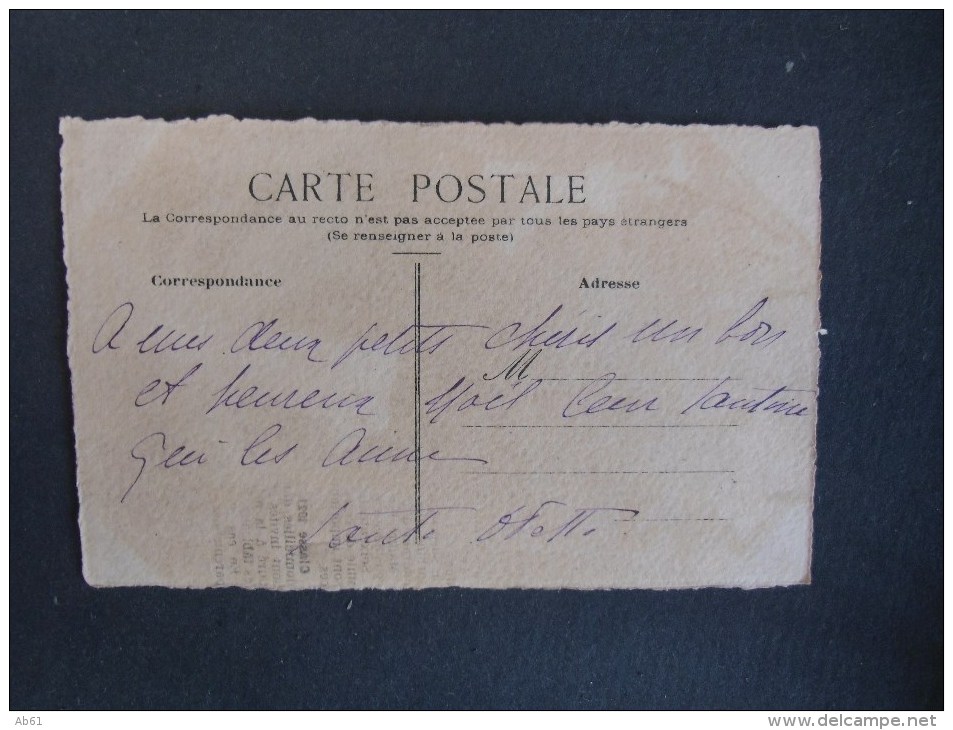 CARTE POSTALE
La Correspondance au recto n'est pas acceptee par tous les pays étrangers
(Se renseigner à la poste)
Correspondance
Adresse
A mes deux petits chéris un bon
M
et heureux Noël leur tantine
qui les aime
Tante Odette
Classe 1921
Ab61
www.delcampe.net